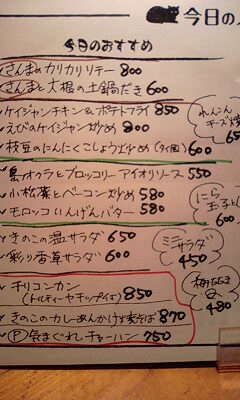 今日の
今日のおすすめ
さんまのカリカリソテー 800
さんまと大根の土鍋だき 600
ケイジャンチキン&ポテトフライ 850
えびのケイジャン炒め 800
枝豆のにんにくこしょう炒め (タイ風) 600
れんこん
チーズ焼
650
島オクラとブロッコリー アイオリソース 550
小松菜とベーコン炒め 580
モロッコいんげんバター 580
にら
玉子とじ
600
きのこの温サラダ 650
彩り香草サラダ 600
ミニ
サラダ
450
チリコンカン
(トルティーヤチップ付き) 850
きのこのカレーあんかけ焼そば 870
P 気まぐれチャーハン 750
480